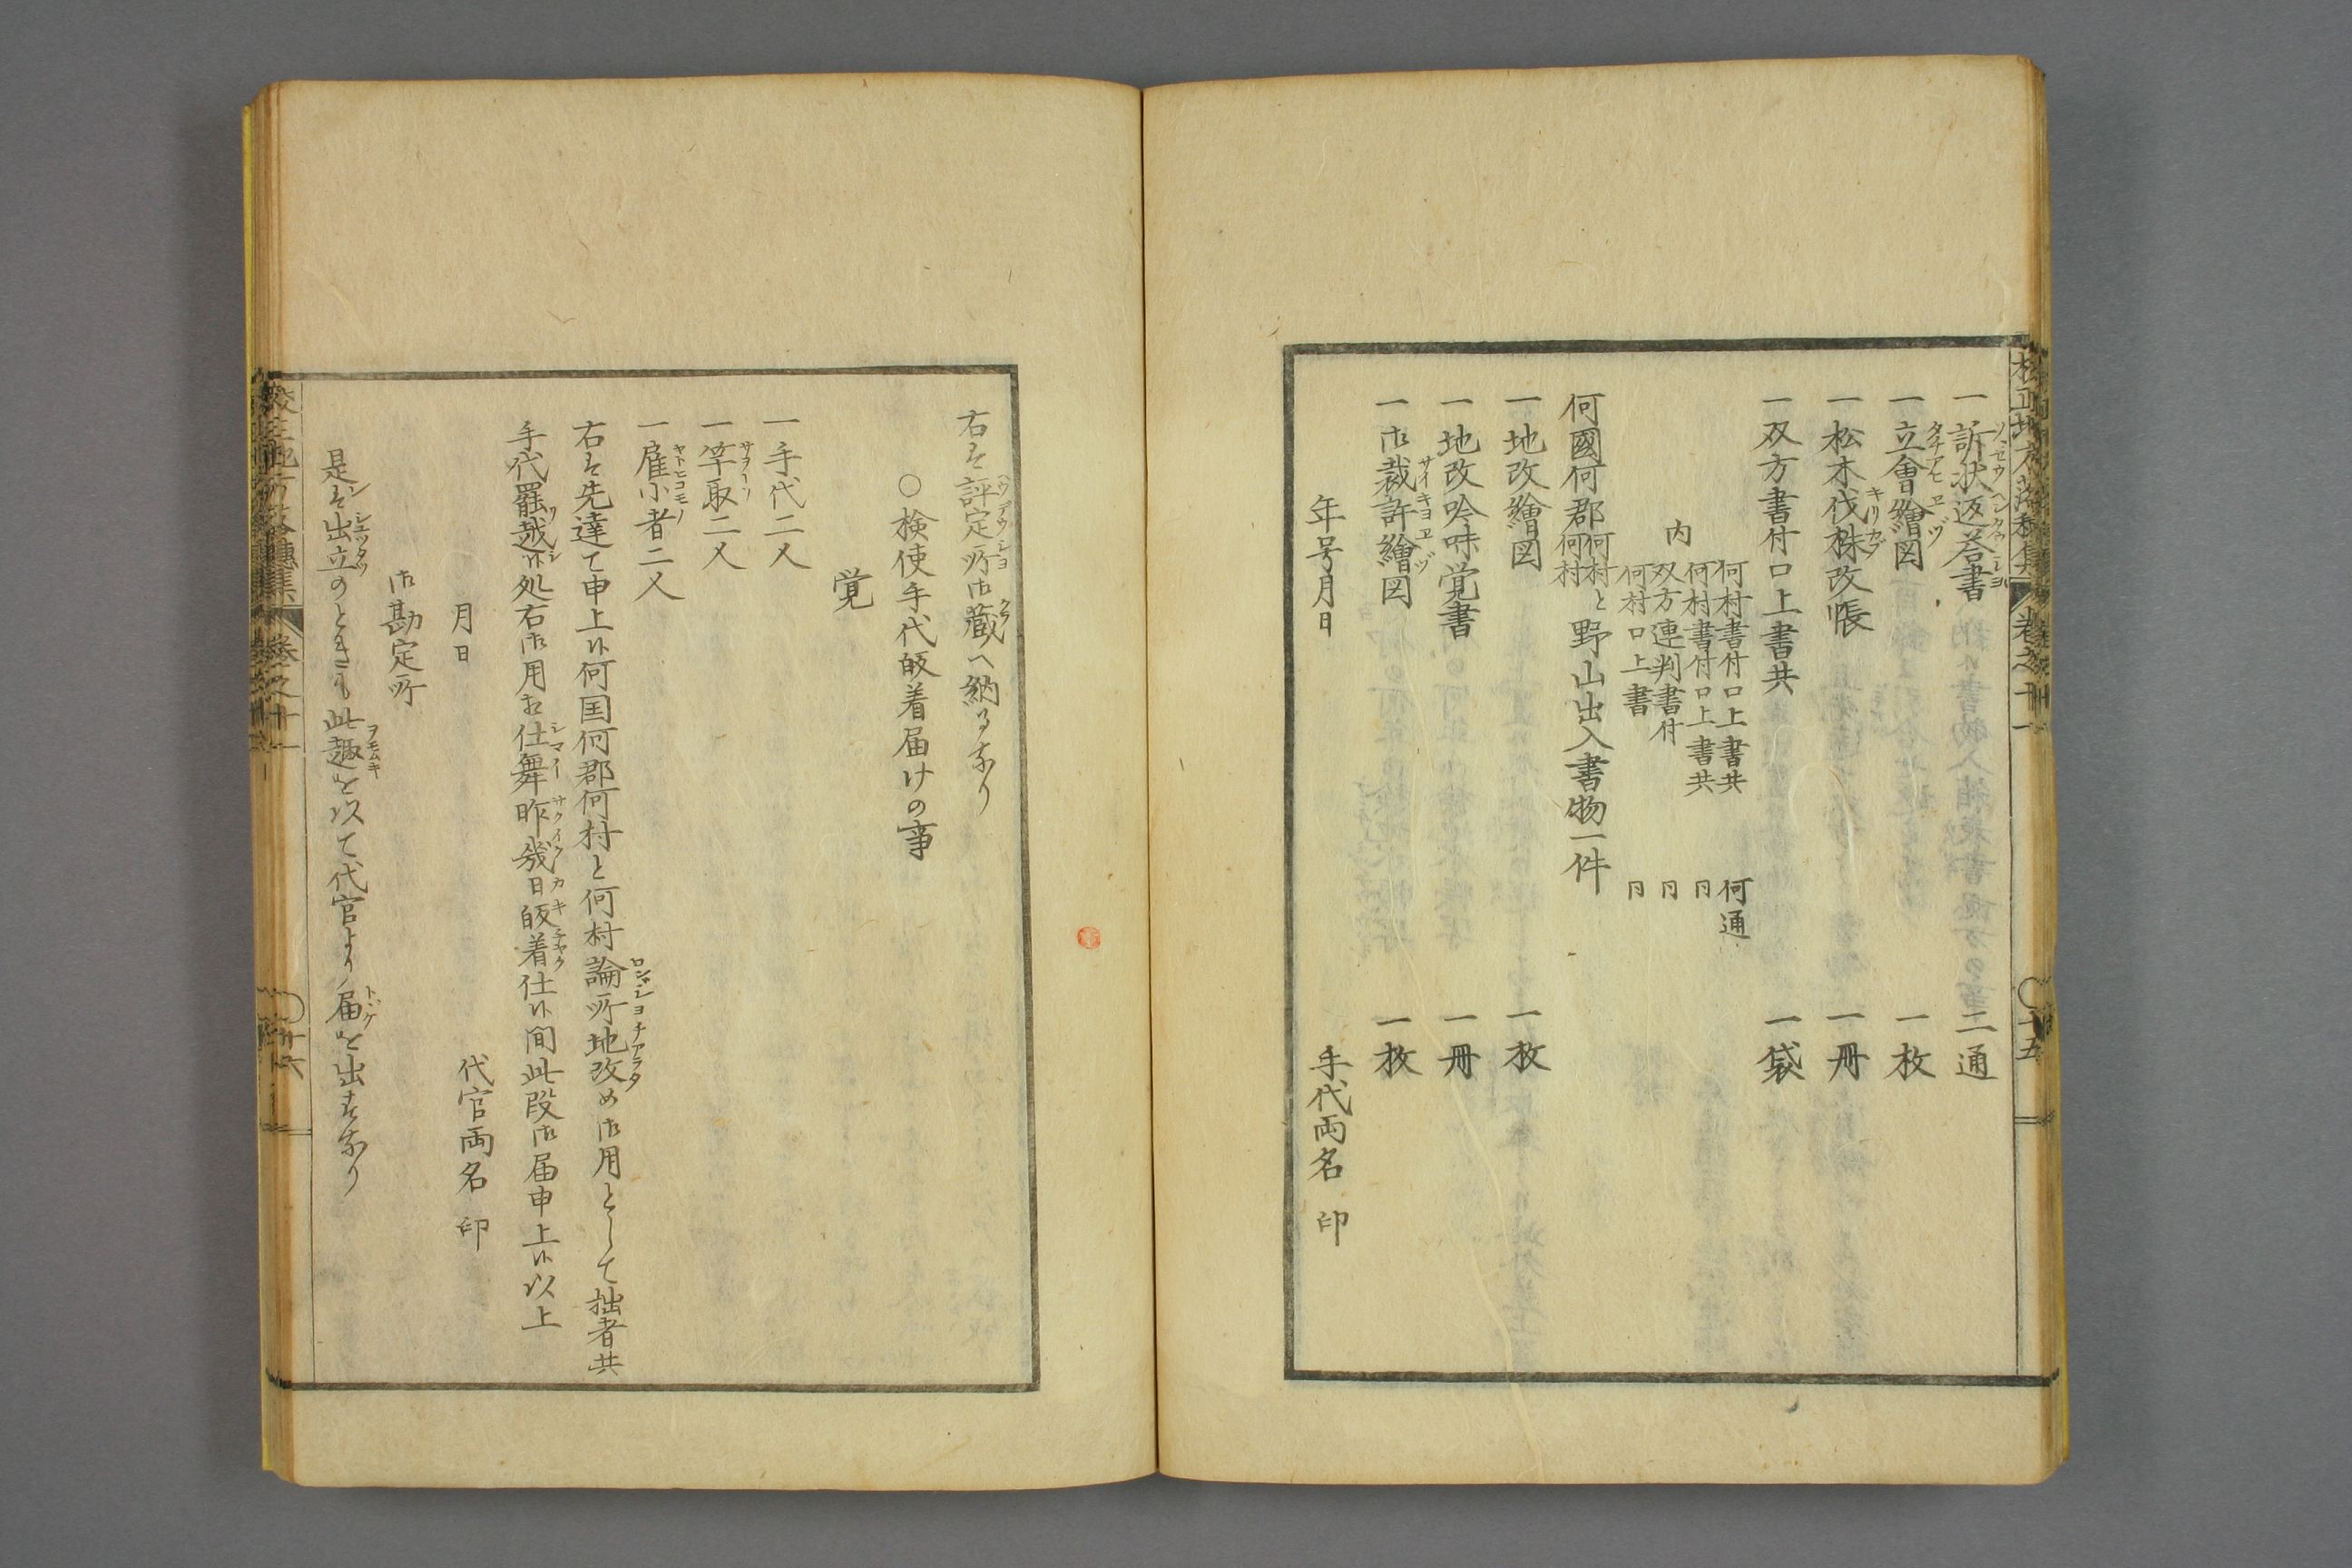 一訴状返答書　二通
一立會繪図　一枚
一松木伐株改帳　一冊
一双方書付口上書共　一袋
内
何村書付口上書共　何通
何村書付口上書共　同
双方連判書付　同
何村口上書　同
何國何郡何村何村と野山出入書物一件
一地改繪図　一枚
一地改吟味覚書　一冊
一御裁許繪図　一枚
年号月日　手代両名　印
右は評定所御藏へ納るなり
○検使手代皈着届けの事
覚
一手代二人
一竿取二人
一雇小者二人
右は先達て申上候何国何郡何村と何村論所地改め御用として拙者共
手代罷越候処右御用相仕舞昨幾日皈着仕候間此段御届申上候以上
月日　代官両名　印
御勘定所
是は出立のときも此趣を以て代官より届を出すなり